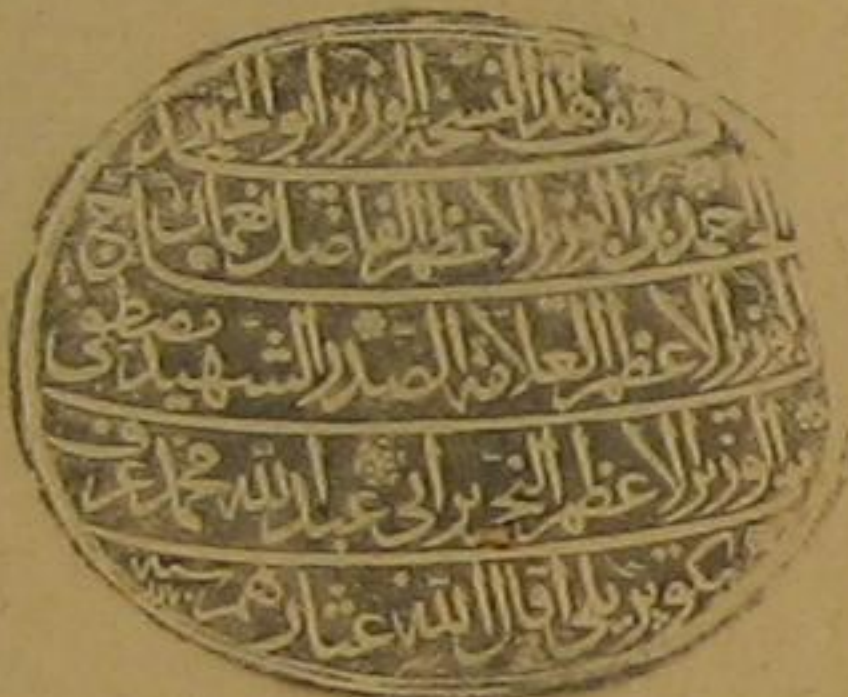 قد وقف هذه النسخة الوزير أبو الخير
الحاج أحمد بن الوزير الأعظم الفاضل نعمان بن
الوزير الأعظم العلامة الصدر الشهيد مصطفى
بن الوزير الأعظم النحرير أبي عبد الله محمد عرف
بكوپريلي أقال الله عثارهم سنة